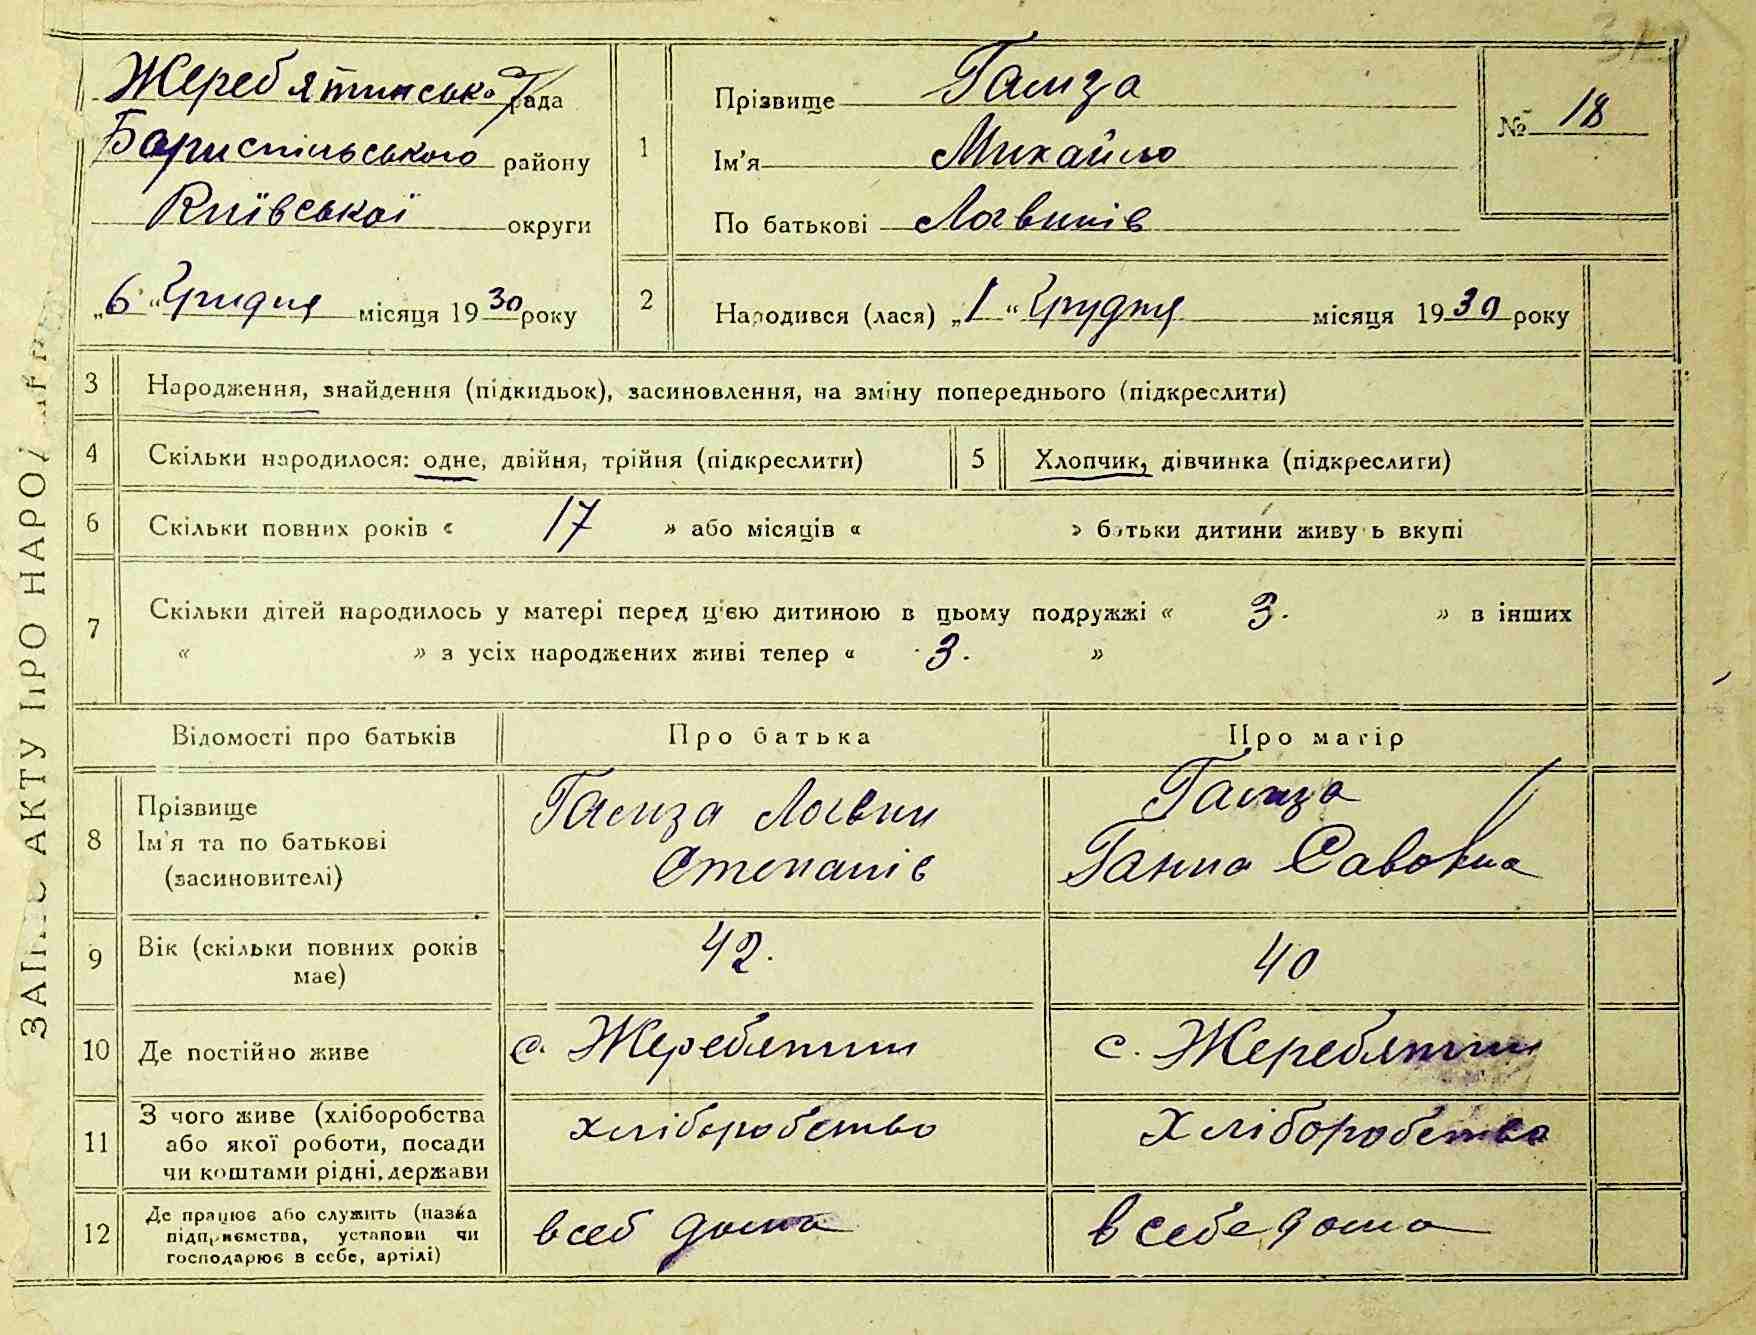 Жереб'ятинська рада
Бориспільського району
Київської округи
„6" Грудня місяця 1930 року
1
Прізвище Гамза
Ім'я Михайло
По батькові Логвинів
№ 18
2
Народився (лася) „1" Грудня місяця 1930 року
3 Народження, знайдення (підкидьок), засиновлення, на зміну попереднього (підкреслити)
4 Скільки народилося: одне, двійня, трійня (підкреслити)
5 Хлопчик, дівчинка (підкреслити)
6 Скільки повних років « 17 » або місяців « » батьки дитини живуть вкупі
7 Скільки дітей народилось у матері перед цією дитиною в цьому подружжі « 3. » в інших
« » з усіх народжених живі тепер « 3. »
Відомості про батьків Про батька Про матір
8 Прізвище
Ім'я та по батькові
(засиновителі)
Гамза Логвин
Степанів
Гамза
Ганна Савовна
9 Вік (скільки повних років
має)
42.
40
10 Де постійно живе
с. Жеребятин
с. Жеребятин
11 З чого живе (хліборобства
або якої роботи, посади
чи коштами рідні, держави
хліборобство
Хліборобство
12 Де працює або служить (назва
підприємства, установи чи
господарює в себе, артілі)
в себ дома
в себе дома
ЗАПИС АКТУ ПРО НАРОД